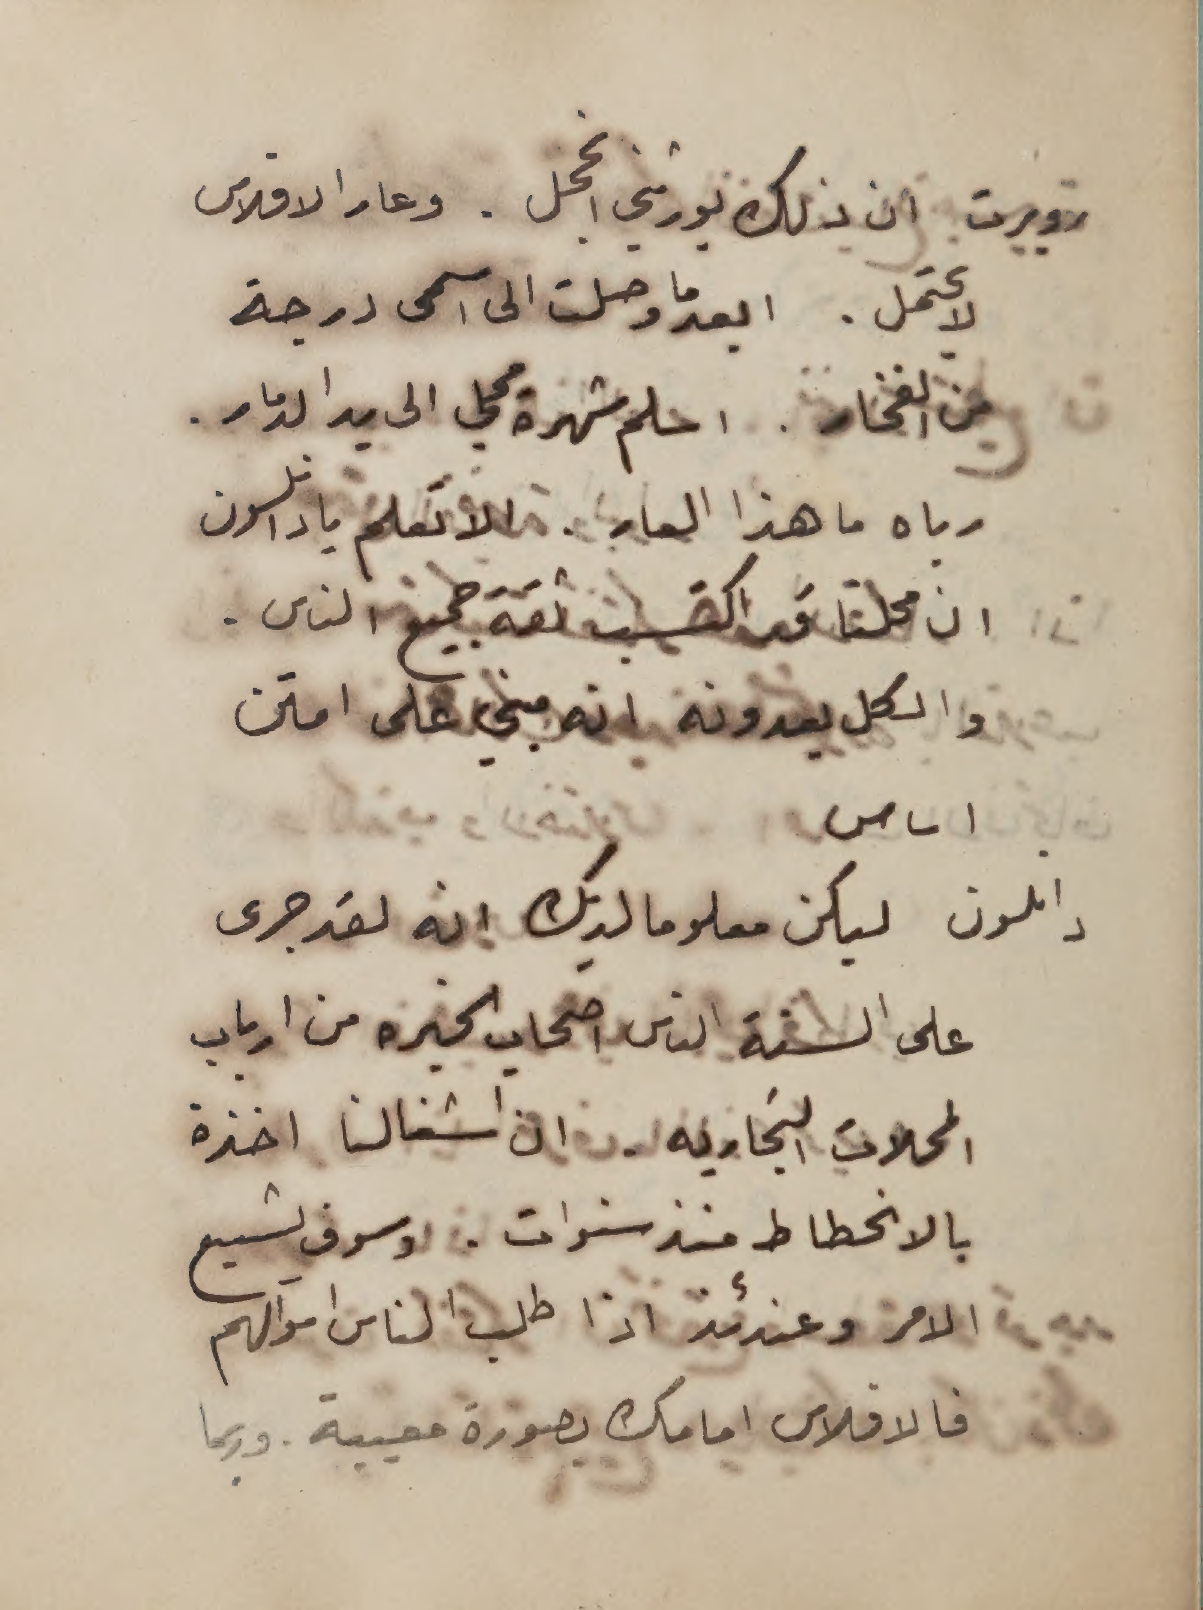 روبرت ان ذلك يورثني الخجل . وعار الافلاس
لا يحتمل . ابعد ما وصلت الى اسمى درجة
من الفخار . احلم شهرة محلي الى يد الدمار .
رباه ما هذا العار . الا تعلم يا دانلسون
ان محلنا قد اكتسب ثقة جميع الناس .
والكل يعدونه انه مبني على امتن
اساس
دانلسون ليكن معلوما لديك انه لقد جرى
على السنة الناس اصحاب الخبره من ارباب
المحلات التجاريه . ان اشغالنا اخذة
بالانحطاط منذ سنوات . وسوف يشيع
الامر وعندئذ اذا طلب الناس اموالهم
فالافلاس امامك بصورة معيبة . وربما